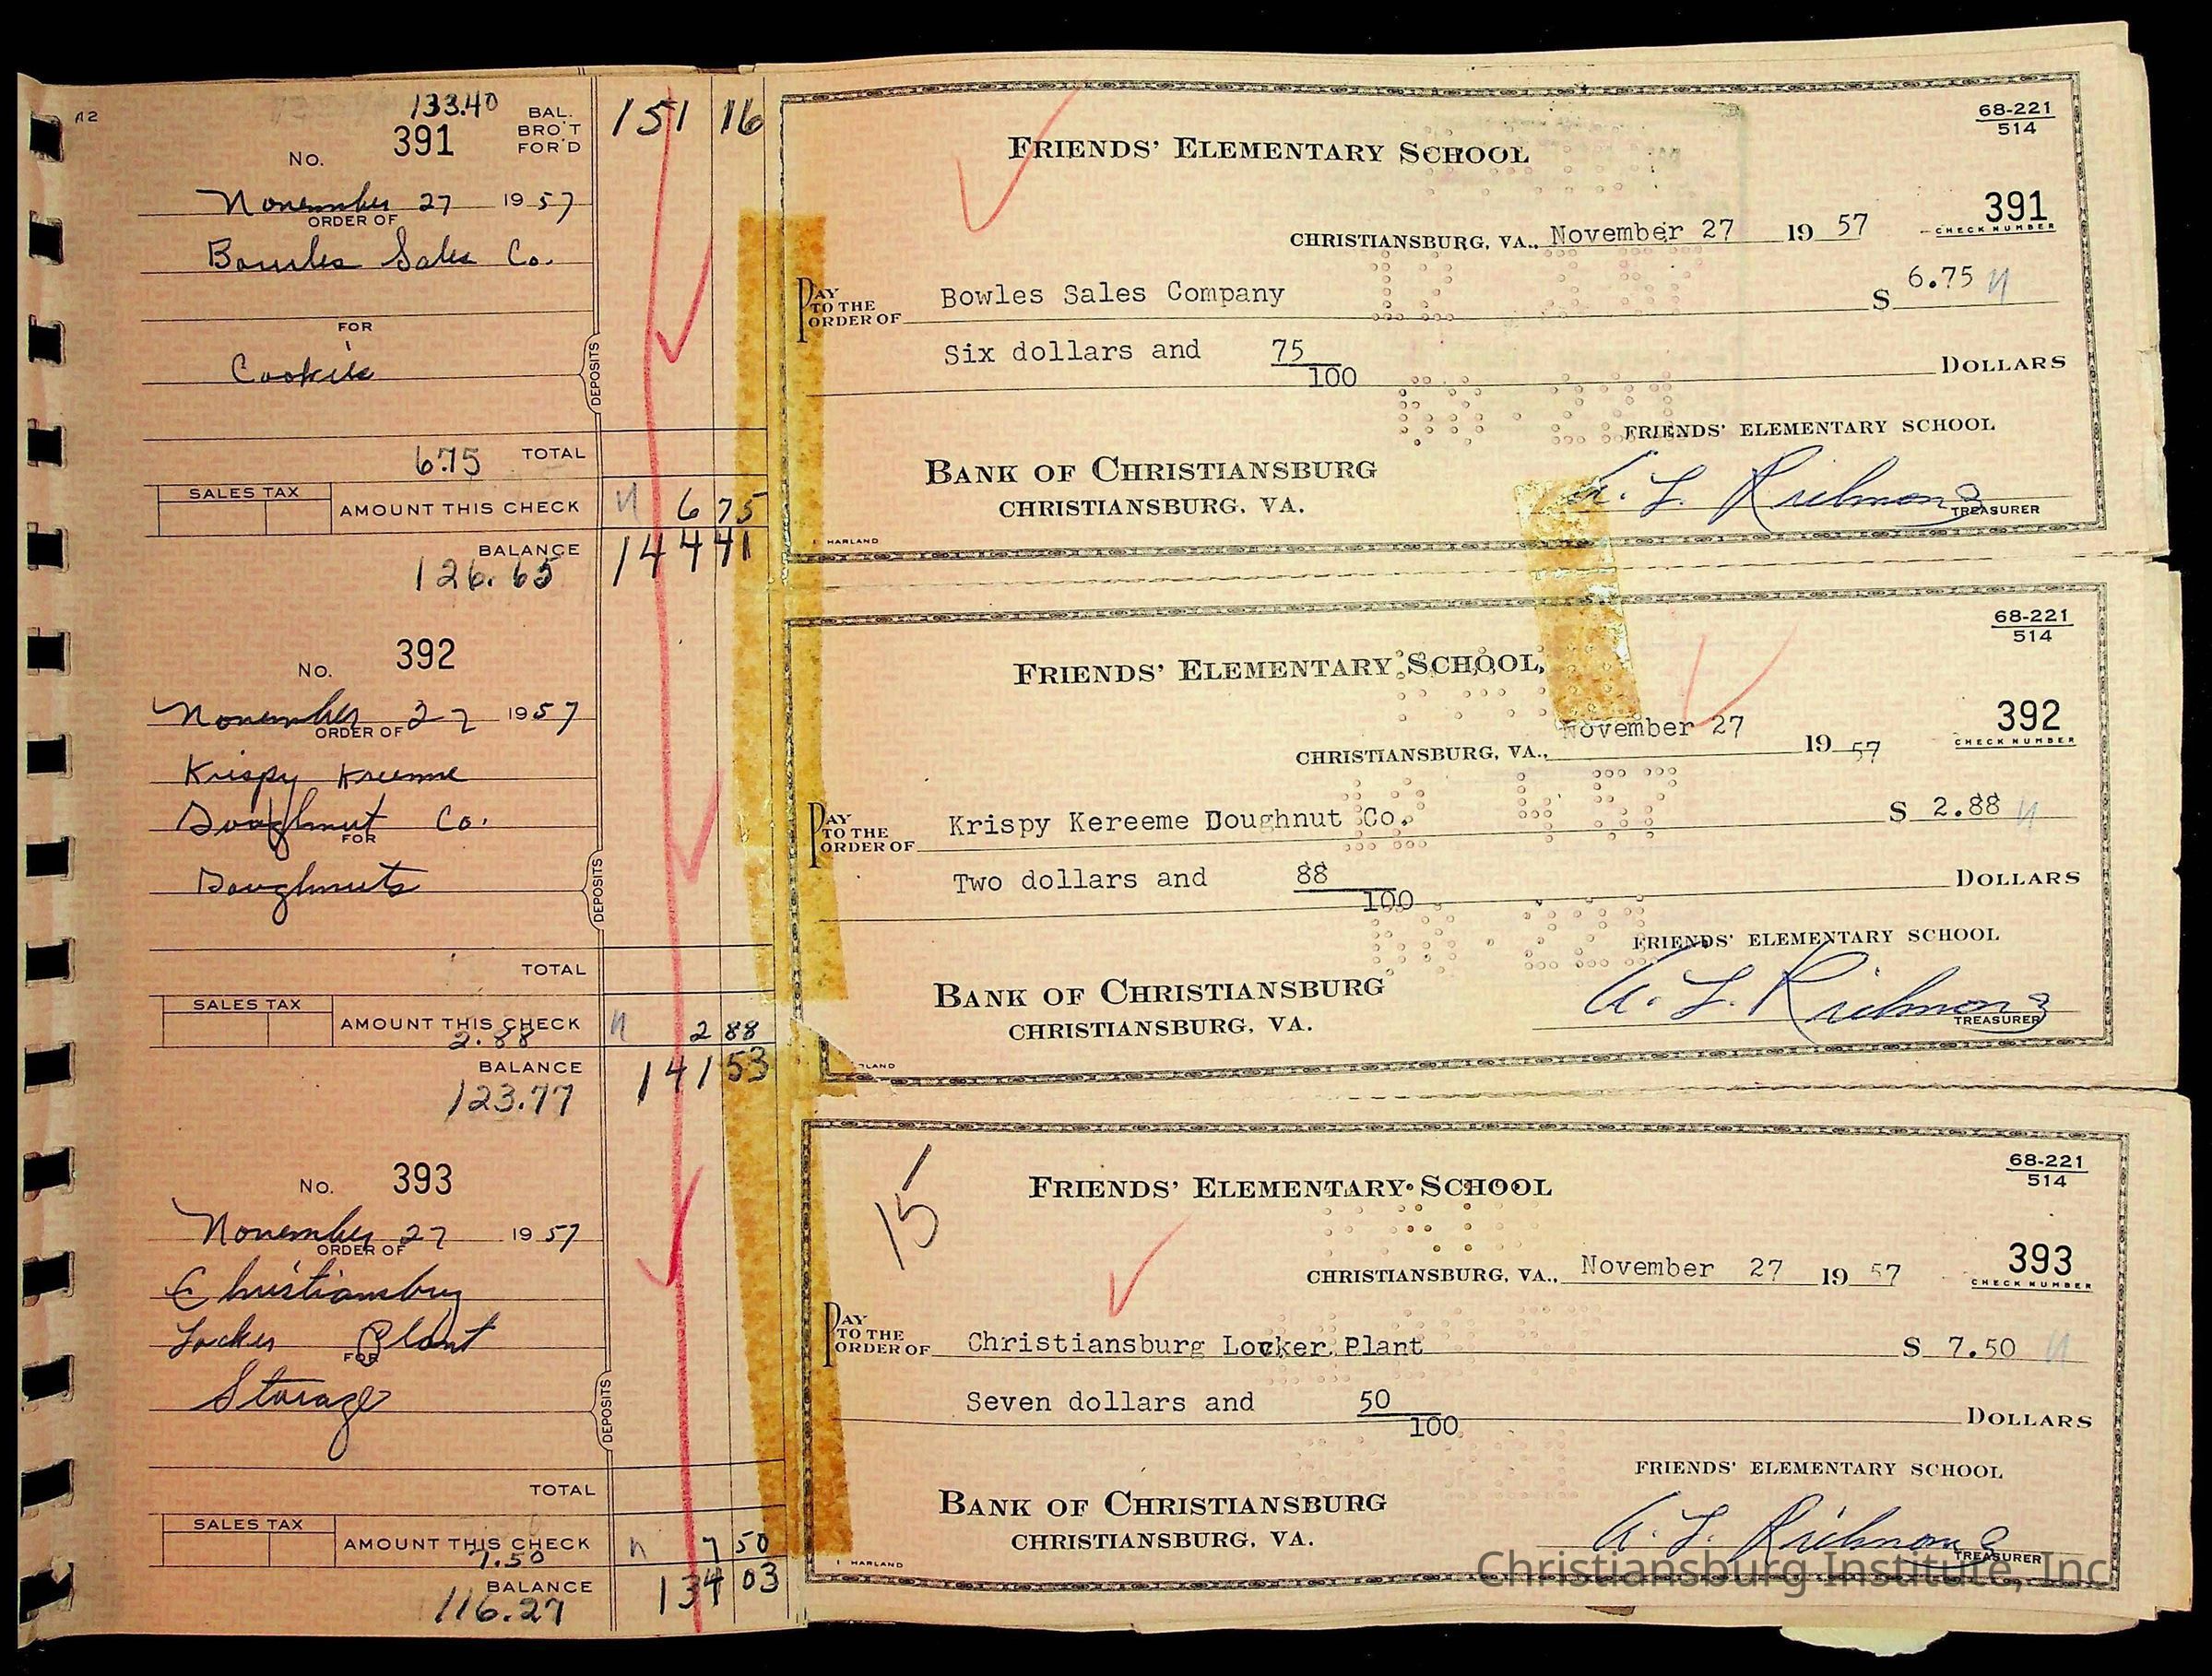 A2
133.40
No. 391
BAL. BRO'T FOR'D 151 16
November 27 1957
ORDER OF
Bowles Sales Co.
FOR
Cookie
DEPOSITS
6.75 TOTAL
SALES TAX
AMOUNT THIS CHECK N 6 75
BALANCE 144 41
126.65
No. 392
November 27 1957
ORDER OF
Krispy Kreeme
Doughnut Co.
FOR
Doughnuts
DEPOSITS
TOTAL
SALES TAX
AMOUNT THIS CHECK N 2 88
2.88
BALANCE 141 53
123.77
No. 393
November 27 1957
ORDER OF
Christiansburg
Locker Plant
FOR
Storage
DEPOSITS
TOTAL
SALES TAX
AMOUNT THIS CHECK N 7 50
7.50
BALANCE 134 03
116.27
68-221
514
FRIENDS' ELEMENTARY SCHOOL
391
CHRISTIANSBURG, VA., November 27 19 57 CHECK NUMBER
PAY TO THE ORDER OF Bowles Sales Company $ 6.75 N
Six dollars and 75/100 DOLLARS
FRIENDS' ELEMENTARY SCHOOL
BANK OF CHRISTIANSBURG
CHRISTIANSBURG, VA.
A. L. Richmond
TREASURER
HARLAND
68-221
514
FRIENDS' ELEMENTARY SCHOOL
392
CHRISTIANSBURG, VA., November 27 19 57 CHECK NUMBER
PAY TO THE ORDER OF Krispy Kereeme Doughnut Co. $ 2.88 N
Two dollars and 88/100 DOLLARS
FRIENDS' ELEMENTARY SCHOOL
BANK OF CHRISTIANSBURG
CHRISTIANSBURG, VA.
A. L. Richmond
TREASURER
LAND
15
68-221
514
FRIENDS' ELEMENTARY SCHOOL
393
CHRISTIANSBURG, VA., November 27 19 57 CHECK NUMBER
PAY TO THE ORDER OF Christiansburg Locker Plant $ 7.50 N
Seven dollars and 50/100 DOLLARS
FRIENDS' ELEMENTARY SCHOOL
BANK OF CHRISTIANSBURG
CHRISTIANSBURG, VA.
A. L. Richmond
TREASURER
HARLAND
Christiansburg Institute, Inc.